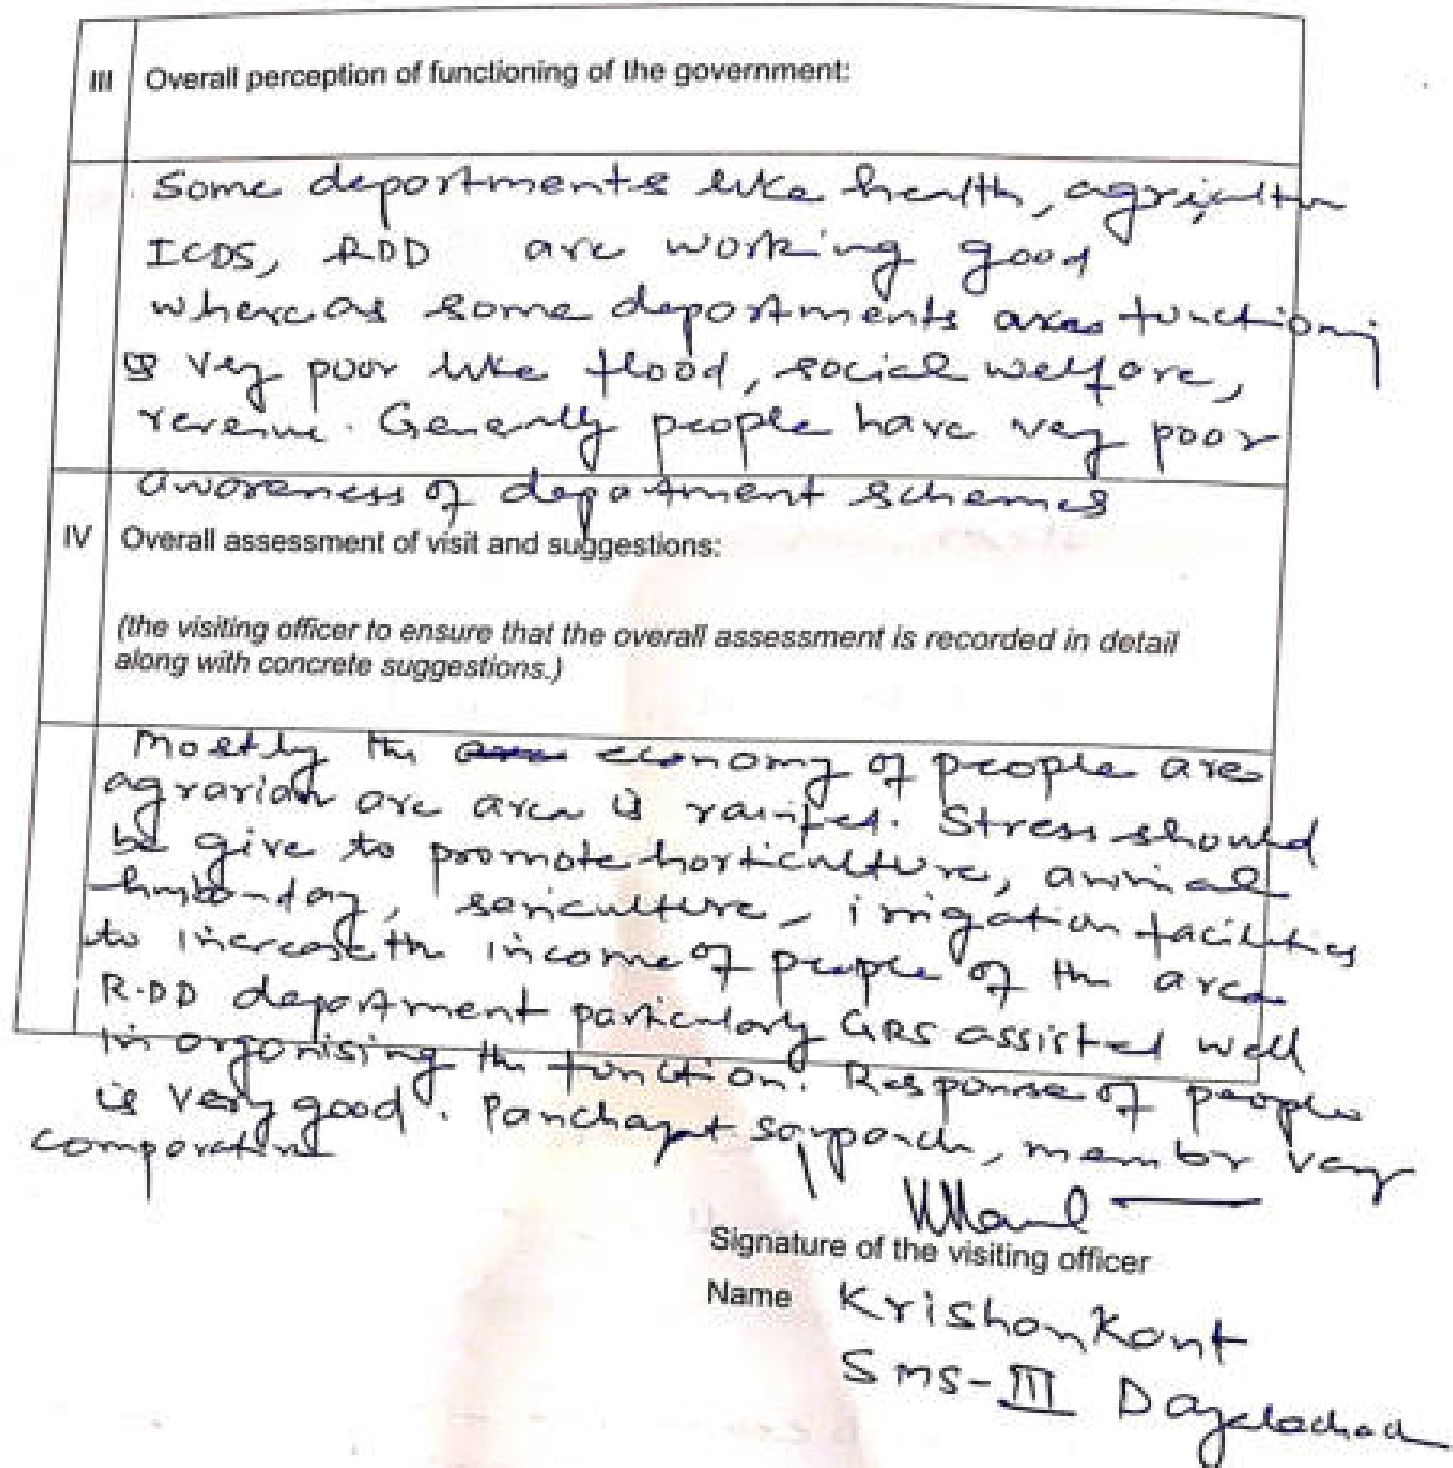 III Overall perception of functioning of the government:
Some departments like health, agricultur
ICDS, RDD are working good
where as some departments are functioning
very poor like flood, social welfare,
revenue. Generally people have very poor
awareness of department schemes
IV Overall assessment of visit and suggestions:
(the visiting officer to ensure that the overall assessment is recorded in detail
along with concrete suggestions.)
Mostly the economy of people are
agrarian are area is rainfed. Stress should
be give to promote horticulture, animal
husbandary, sericulture, irrigation facilities
to increase the income of people of the area
R.DD department particularly GRS assisted well
in organising the function. Response of people
is very good. Panchayat sarpanch, member very
Signature of the visiting officer
Name Krishan Kant
SMS-III